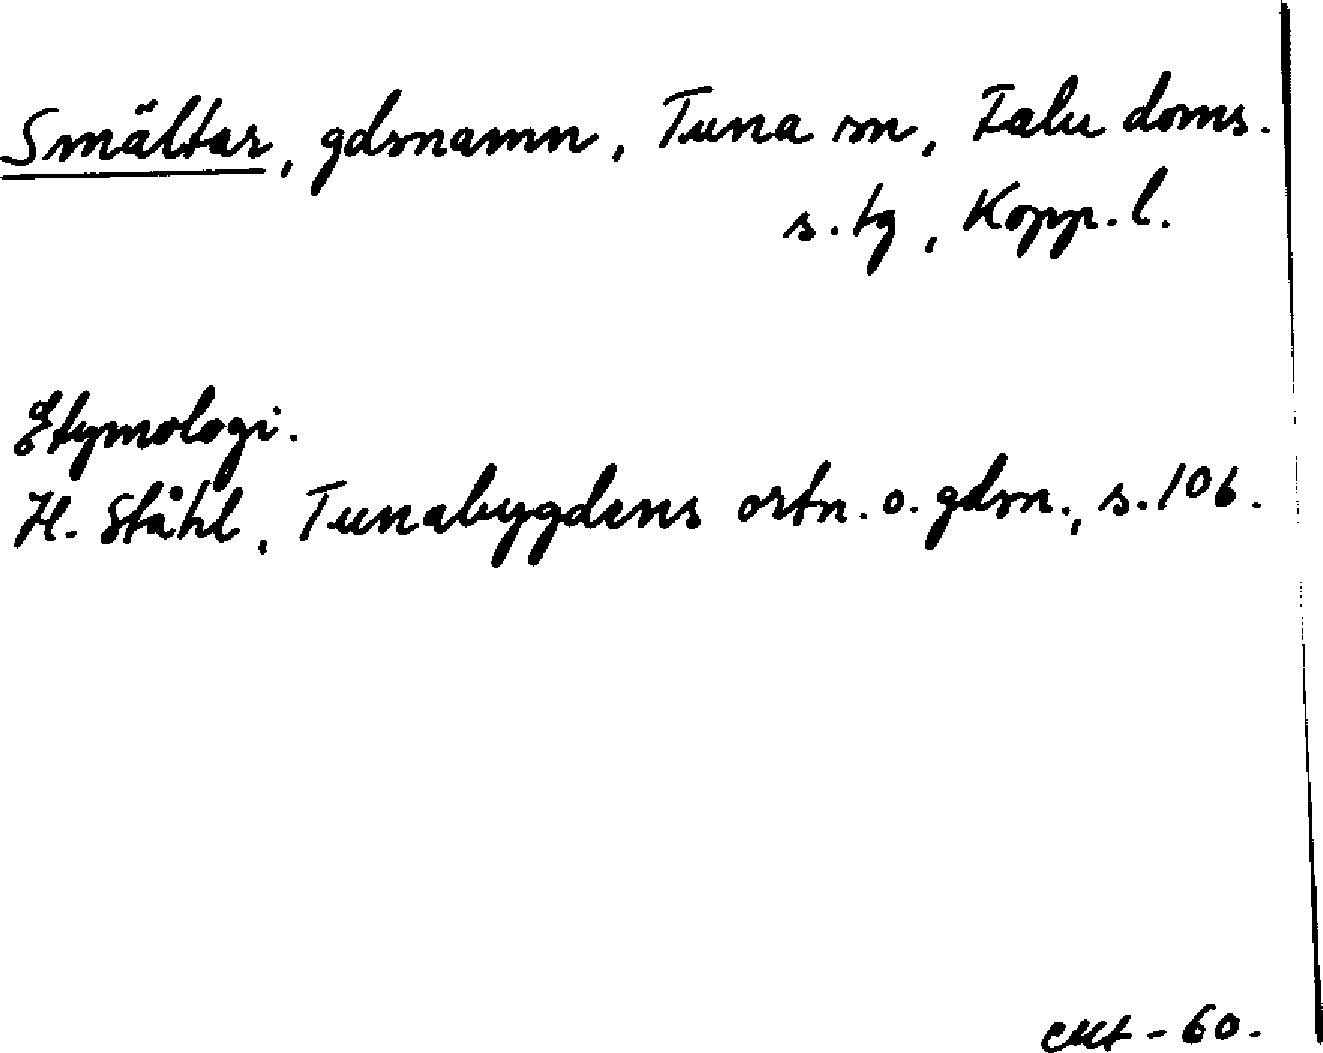 Smältar, gdsnamn, Tuna sn, Falu doms.
s. tg, Kopp. l.
Etymologi.
H. Ståhl, Tunabygdens ortn. o. gdsn., s. 106.
-60.